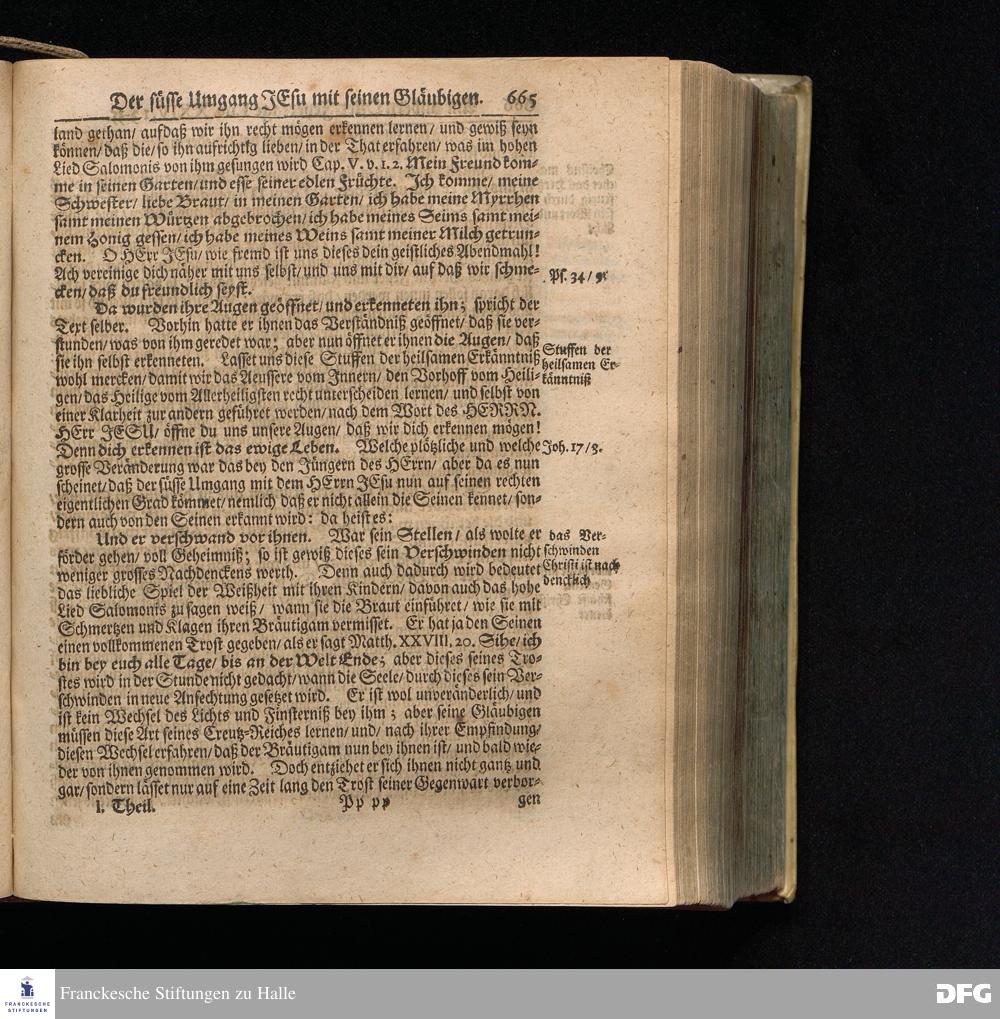 Der süsse Umgang JEsu mit seinen Gläubigen. 665
land gethan/ aufdaß wir ihn recht mögen erkennen lernen/ und gewiß seyn
können/ daß die/ so ihn aufrichtig lieben/ in der That erfahren/ was im hohen
Lied Salomonis von ihm gesungen wird Cap. V. v. 1. 2. Mein Freund kom-
me in seinen Garten/ und esse seiner edlen Früchte. Ich komme/ meine
Schwester/ liebe Braut/ in meinen Garten/ ich habe meine Myrrhen
samt meinen Würtzen abgebrochen/ ich habe meines Seims samt mei-
nem Honig gessen/ ich habe meines Weins samt meiner Milch getrun-
cken. O HErr JEsu/ wie fremd ist uns dieses dein geistliches Abendmahl!
Ach vereinige dich näher mit uns selbst/ und uns mit dir/ auf daß wir schme-
cken/ daß du freundlich seyst.
Ps. 34/ 9.
Da wurden ihre Augen geöffnet/ und erkenneten ihn; spricht der
Text selber. Vorhin hatte er ihnen das Verständniß geöffnet/ daß sie ver-
stunden/ was von ihm geredet war; aber nun öffnet er ihnen die Augen/ daß
sie ihn selbst erkenneten. Lasset uns diese Stuffen der heilsamen Erkänntniß
wohl mercken/ damit wir das Aeussere vom Innern/ den Vorhoff vom Heili-
gen/ das Heilige vom Allerheiligsten recht unterscheiden lernen/ und selbst von
einer Klarheit zur andern geführet werden/ nach dem Wort des HERRN.
HErr JESU/ öffne du uns unsere Augen/ daß wir dich erkennen mögen!
Denn dich erkennen ist das ewige Leben. Welche plötzliche und welche
grosse Veränderung war das bey den Jüngern des HErrn/ aber da es nun
scheinet/ daß der süsse Umgang mit dem HErrn JEsu nun auf seinen rechten
eigentlichen Grad kömmet/ nemlich daß er nicht allein die Seinen kennet/ son-
dern auch von den Seinen erkannt wird: da heist es:
Stuffen der
heilsamen Er-
känntniß
Joh. 17/ 3.
Und er verschwand vor ihnen. War sein Stellen/ als wolte er
förder gehen/ voll Geheimniß; so ist gewiß dieses sein Verschwinden nicht
weniger grosses Nachdenckens werth. Denn auch dadurch wird bedeutet
das liebliche Spiel der Weißheit mit ihren Kindern/ davon auch das hohe
Lied Salomonis zu sagen weiß/ wann sie die Braut einführet/ wie sie mit
Schmertzen und Klagen ihren Bräutigam vermisset. Er hat ja den Seinen
einen vollkommenen Trost gegeben/ als er sagt Matth. XXVIII, 20. Sihe/ ich
bin bey euch alle Tage/ bis an der Welt Ende; aber dieses seines Tro-
stes wird in der Stunde nicht gedacht/ wann die Seele/ durch dieses sein Ver-
schwinden in neue Anfechtung gesetzet wird. Er ist wol unveränderlich/ und
ist kein Wechsel des Lichts und Finsterniß bey ihm; aber seine Gläubigen
müssen diese Art seines Creutz-Reiches lernen/ und/ nach ihrer Empfindung/
diesen Wechsel erfahren/ daß der Bräutigam nun bey ihnen ist/ und bald wie-
der von ihnen genommen wird. Doch entziehet er sich ihnen nicht gantz und
gar/ sondern lässet nur auf eine Zeit lang den Trost seiner Gegenwart verbor-
das Ver-
schwinden
Christi ist nach
dencklich
I. Theil. Pp pp gen
FRANCKESCHE
STIFTUNGEN
Franckesche Stiftungen zu Halle
DFG